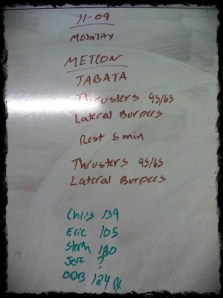 11-09
MOBILITY
METCON
TABATA
Thrusters 95/65
Lateral Burpees
Rest 5 min
Thrusters 95/65
Lateral Burpees
Chris 139
Eric 105
130
Jeff ?
ODB 124